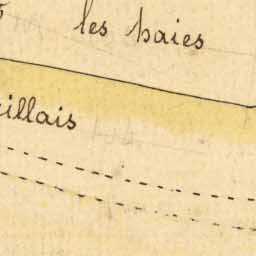 les haies
illais